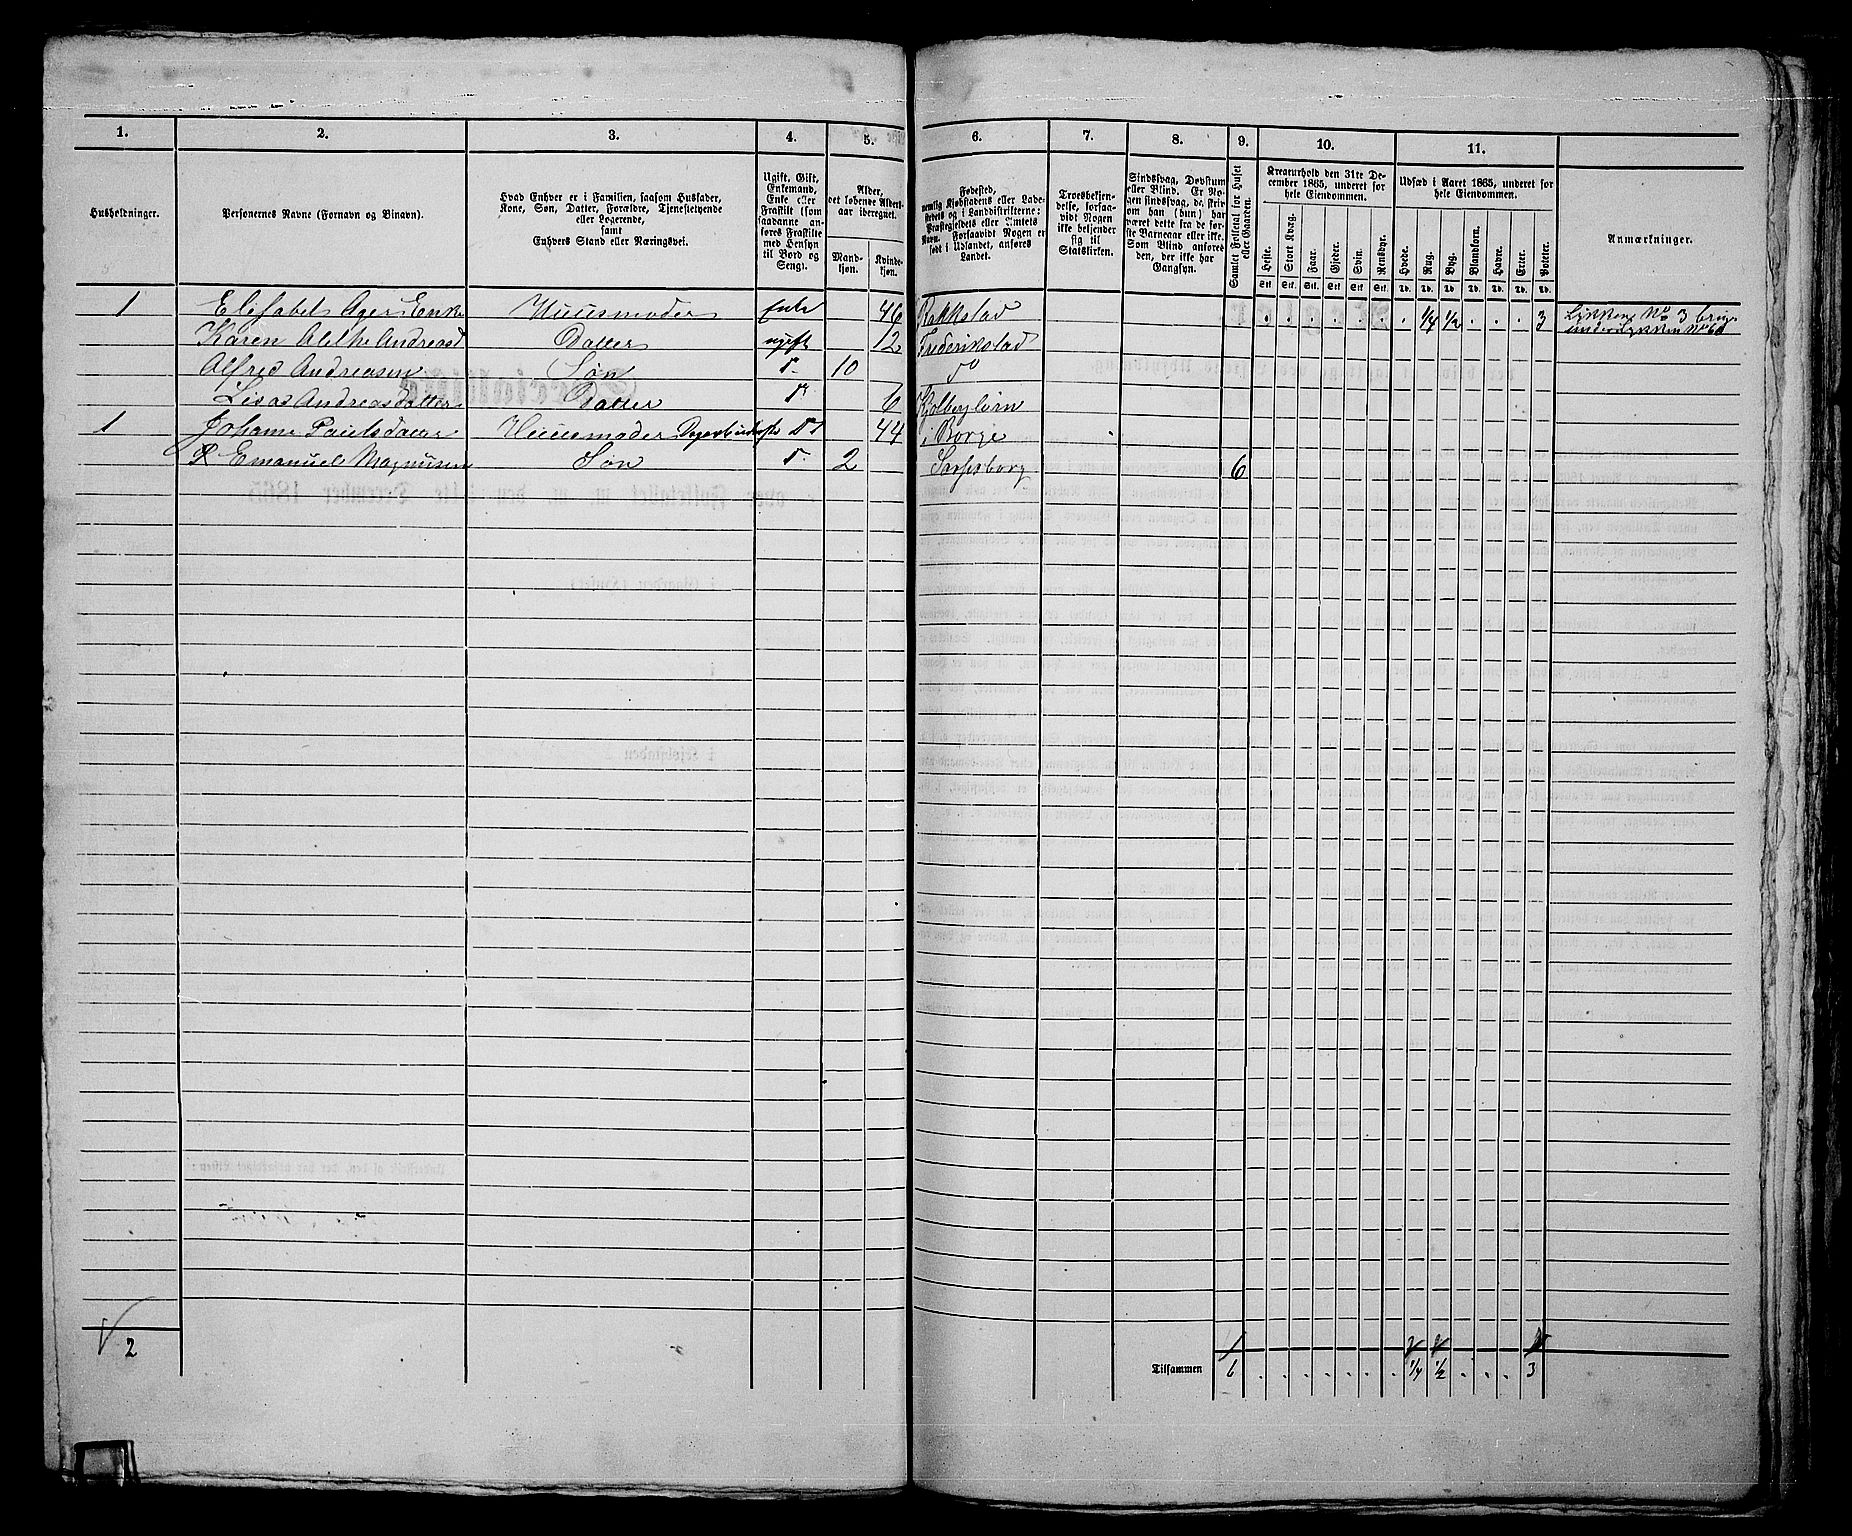 1. 2. 3. 4. 5. 6. 7. 8. 9. 10. 11.
Husholdninger.
Personernes Navne (Fornavn og Binavn).
Hvad Enhver er i Familien, saasom Husfader,
Kone, Søn, Datter, Forældre, Tjenestetyende
eller Logerende,
samt
Enhvers Stand eller Næringsvei.
Ugift, Gift,
Enkemand,
Enke eller
Fraskilt (som
saadanne an-
føres Fraskilte
med Hensyn
til Bord og
Seng).
Alder,
det løbende Alders-
aar iberegnet.
Mand-
kjøn.
Kvinde-
kjøn.
Fødested,
nemlig Kjøbstadens eller Lade-
stedets og i Landdistrikterne:
Præstegjeldets eller Amtets
Navn. Forsaavidt Nogen er
født i Udlandet, anføres
Landet.
Troesbekjen-
delse, forsaa-
vidt Nogen
ikke bekjender
sig til
Statskirken.
Sindssvag, Døvstum
eller Blind. Er No-
gen sindssvag, da, skriv
om han (hun) har
været dette fra de før-
ste Barneaar eller ikke.
Som Blind anføres
den, der ikke har
Gangsyn.
Samlet Folketal for Huset
eller Gaarden.
Kreaturhold den 31te De-
cember 1865, underet for
hele Eiendommen.
Heste. Stort Kvæg. Faar. Gjeder. Svin. Rensdyr.
Stk. Stk. Stk. Stk. Stk. Stk.
Udsæd i Aaret 1865, underet for
hele Eiendommen.
Hvede. Rug. Byg. Blandkorn. Havre. Erter. Poteter.
Td. Td. Td. Td. Td. Td. Td.
Anmærkninger.
1 Elisabet Ager Enke Huusmoder Enke 46 Rakkestad . . . . . . . 1/4 1/2 . . . 3 Løkken No 3 brug
under Løkken No
Karen Alethe Andreasd Datter ugift 12 Frederikstad
Alfred Andreasen Søn do 10 do
Andreasdatter Datter do 6
1 Johanne Paulsdatter Huusmoder do 44 i Borge
Emanuel Magnusen Søn do 2 Sarpsborg 6
2
Tilsammen 6 . . . . . . . 1/4 1/2 . . . 3